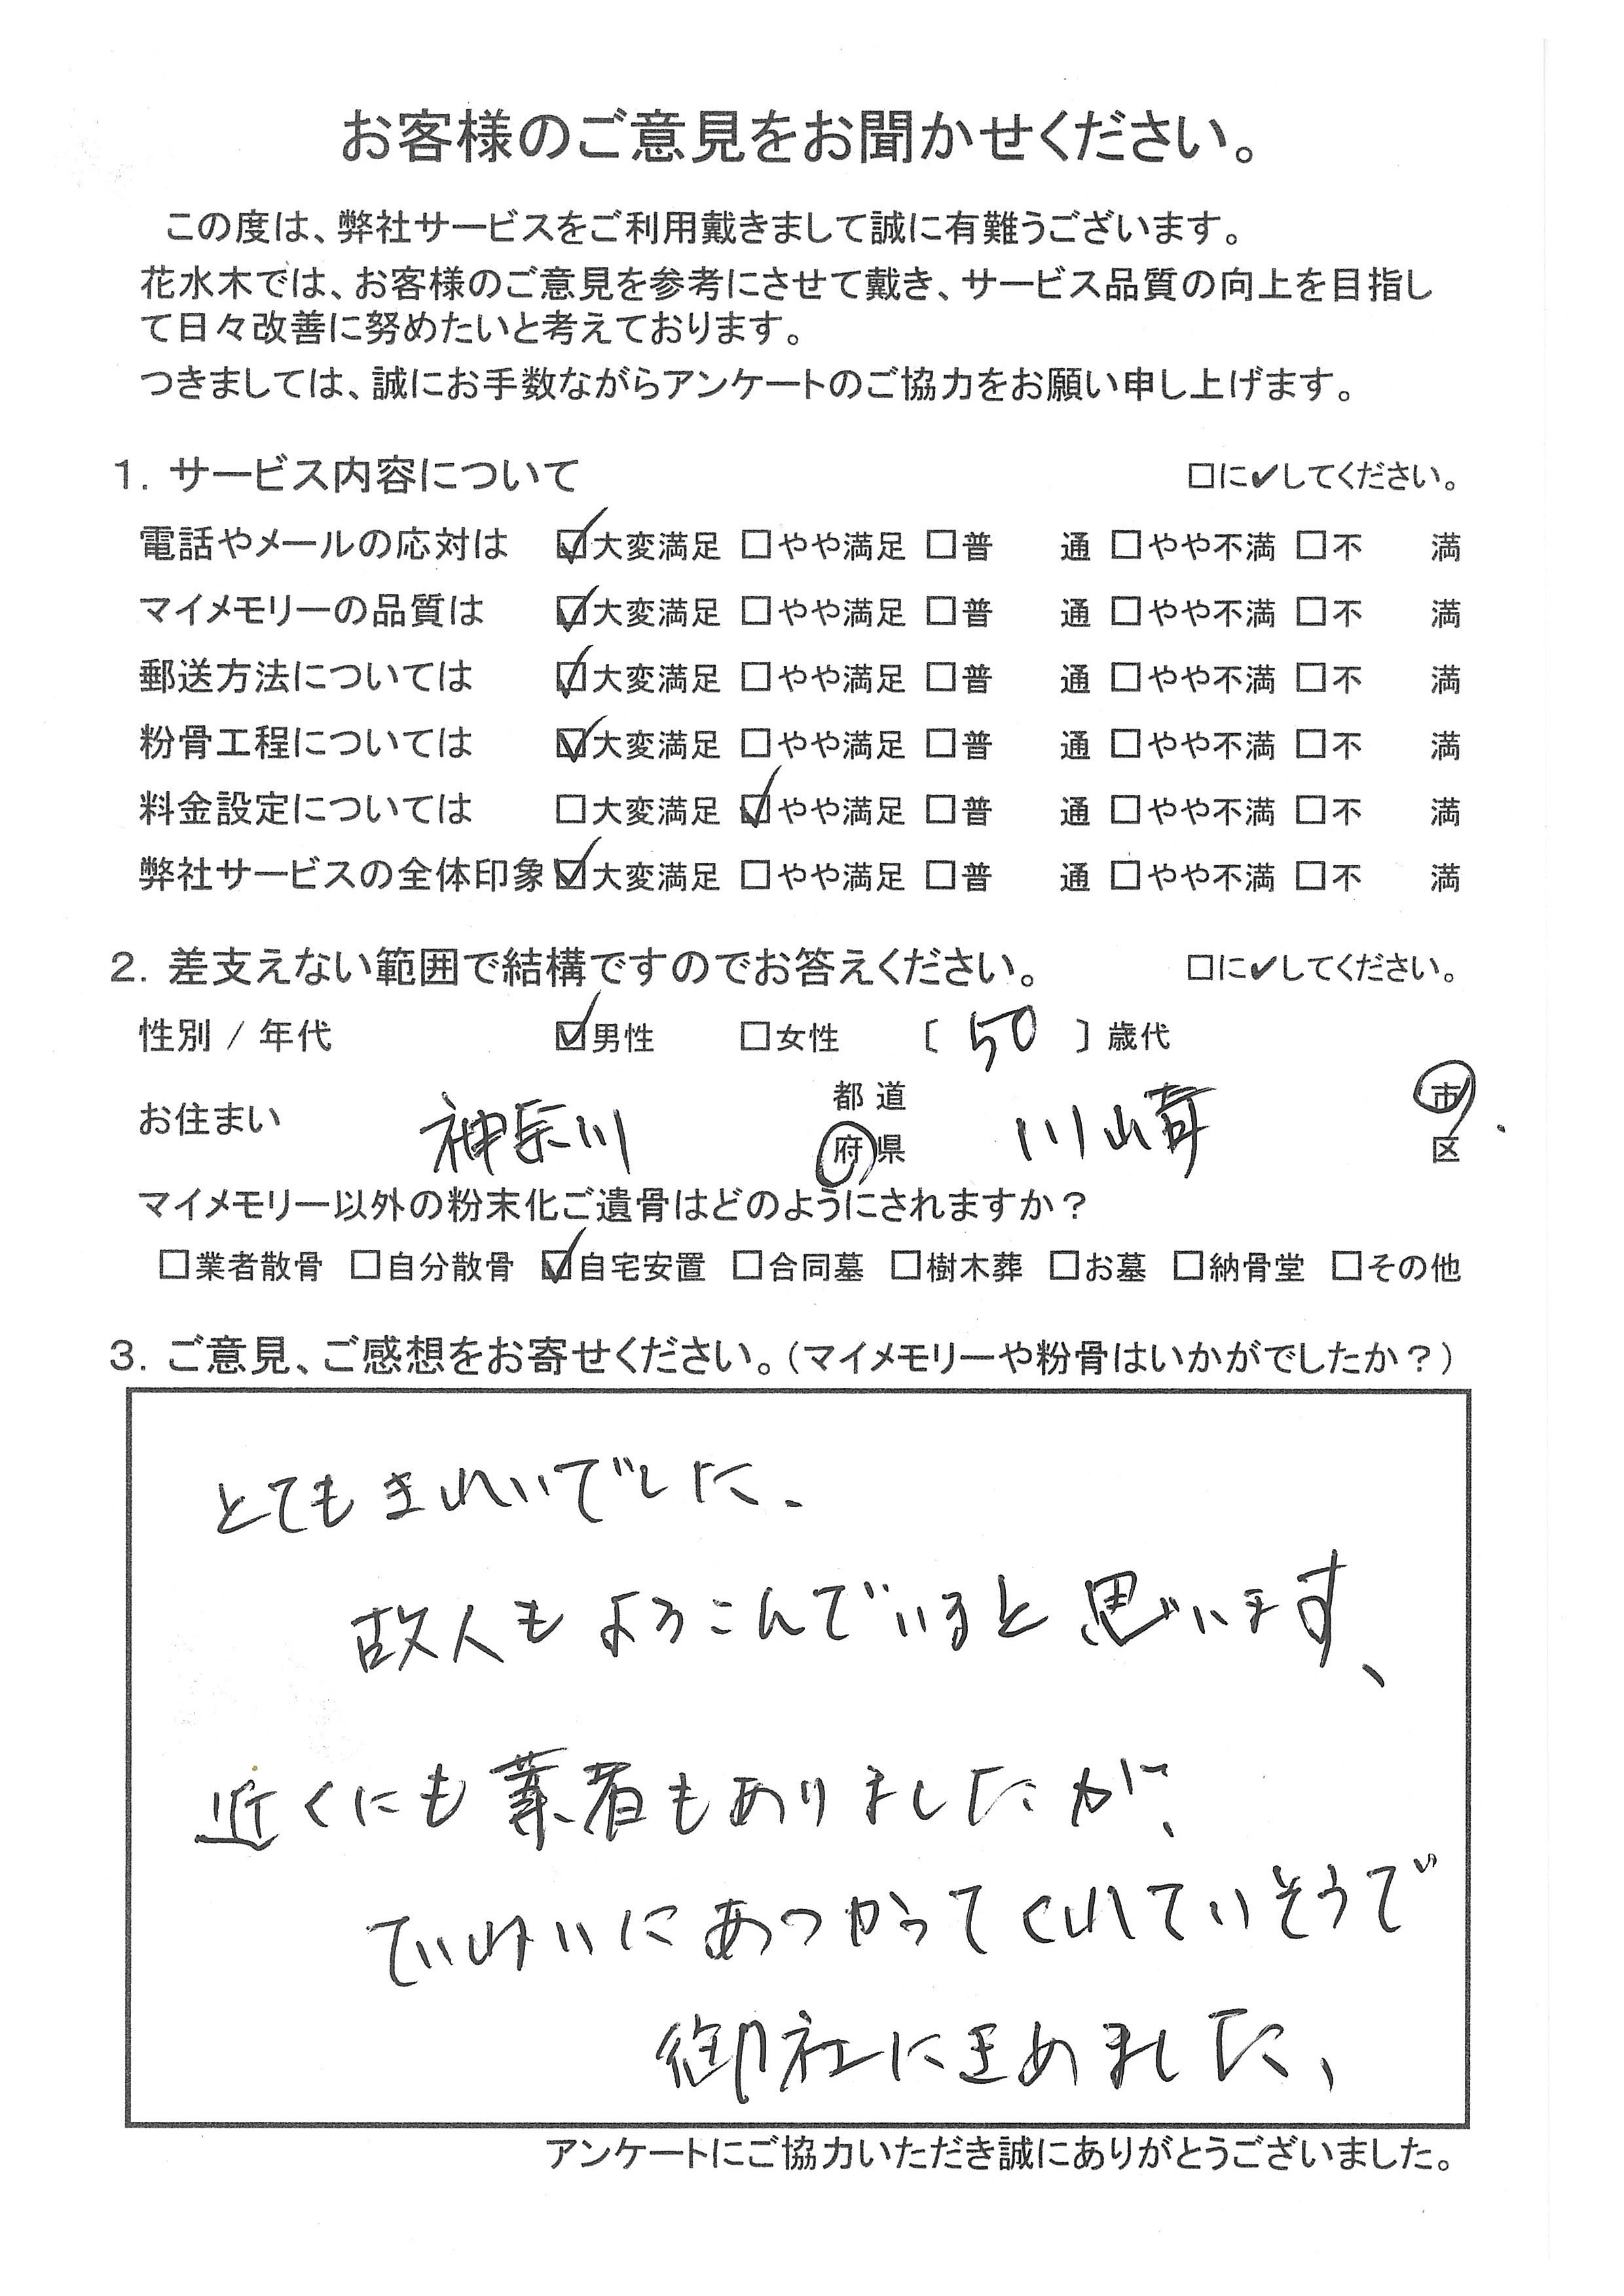 お客様のご意見をお聞かせください。
この度は、弊社サービスをご利用戴きまして誠に有難うございます。
花水木では、お客様のご意見を参考にさせて戴き、サービス品質の向上を目指し
て日々改善に努めたいと考えております。
つきましては、誠にお手数ながらアンケートのご協力をお願い申し上げます。
1. サービス内容について □に✔してください。
電話やメールの応対は ☑大変満足 □やや満足 □普 通 □やや不満 □不 満
マイメモリーの品質は ☑大変満足 □やや満足 □普 通 □やや不満 □不 満
郵送方法については ☑大変満足 □やや満足 □普 通 □やや不満 □不 満
粉骨工程については ☑大変満足 □やや満足 □普 通 □やや不満 □不 満
料金設定については □大変満足 ☑やや満足 □普 通 □やや不満 □不 満
弊社サービスの全体印象 ☑大変満足 □やや満足 □普 通 □やや不満 □不 満
2. 差支えない範囲で結構ですのでお答えください。 □に✔してください。
性別 / 年代 ☑男性 □女性 〔 50 〕歳代
お住まい 神奈川 都道府県 川崎 市区
マイメモリー以外の粉末化ご遺骨はどのようにされますか？
□業者散骨 □自分散骨 ☑自宅安置 □合同墓 □樹木葬 □お墓 □納骨堂 □その他
3. ご意見、ご感想をお寄せください。（マイメモリーや粉骨はいかがでしたか？）
とてもきれいでした.
故人もよろこんでいると思います、
近くにも業者もありましたが、
ていねいにあつかってくれていそうで
御社にきめました、
アンケートにご協力いただき誠にありがとうございました。